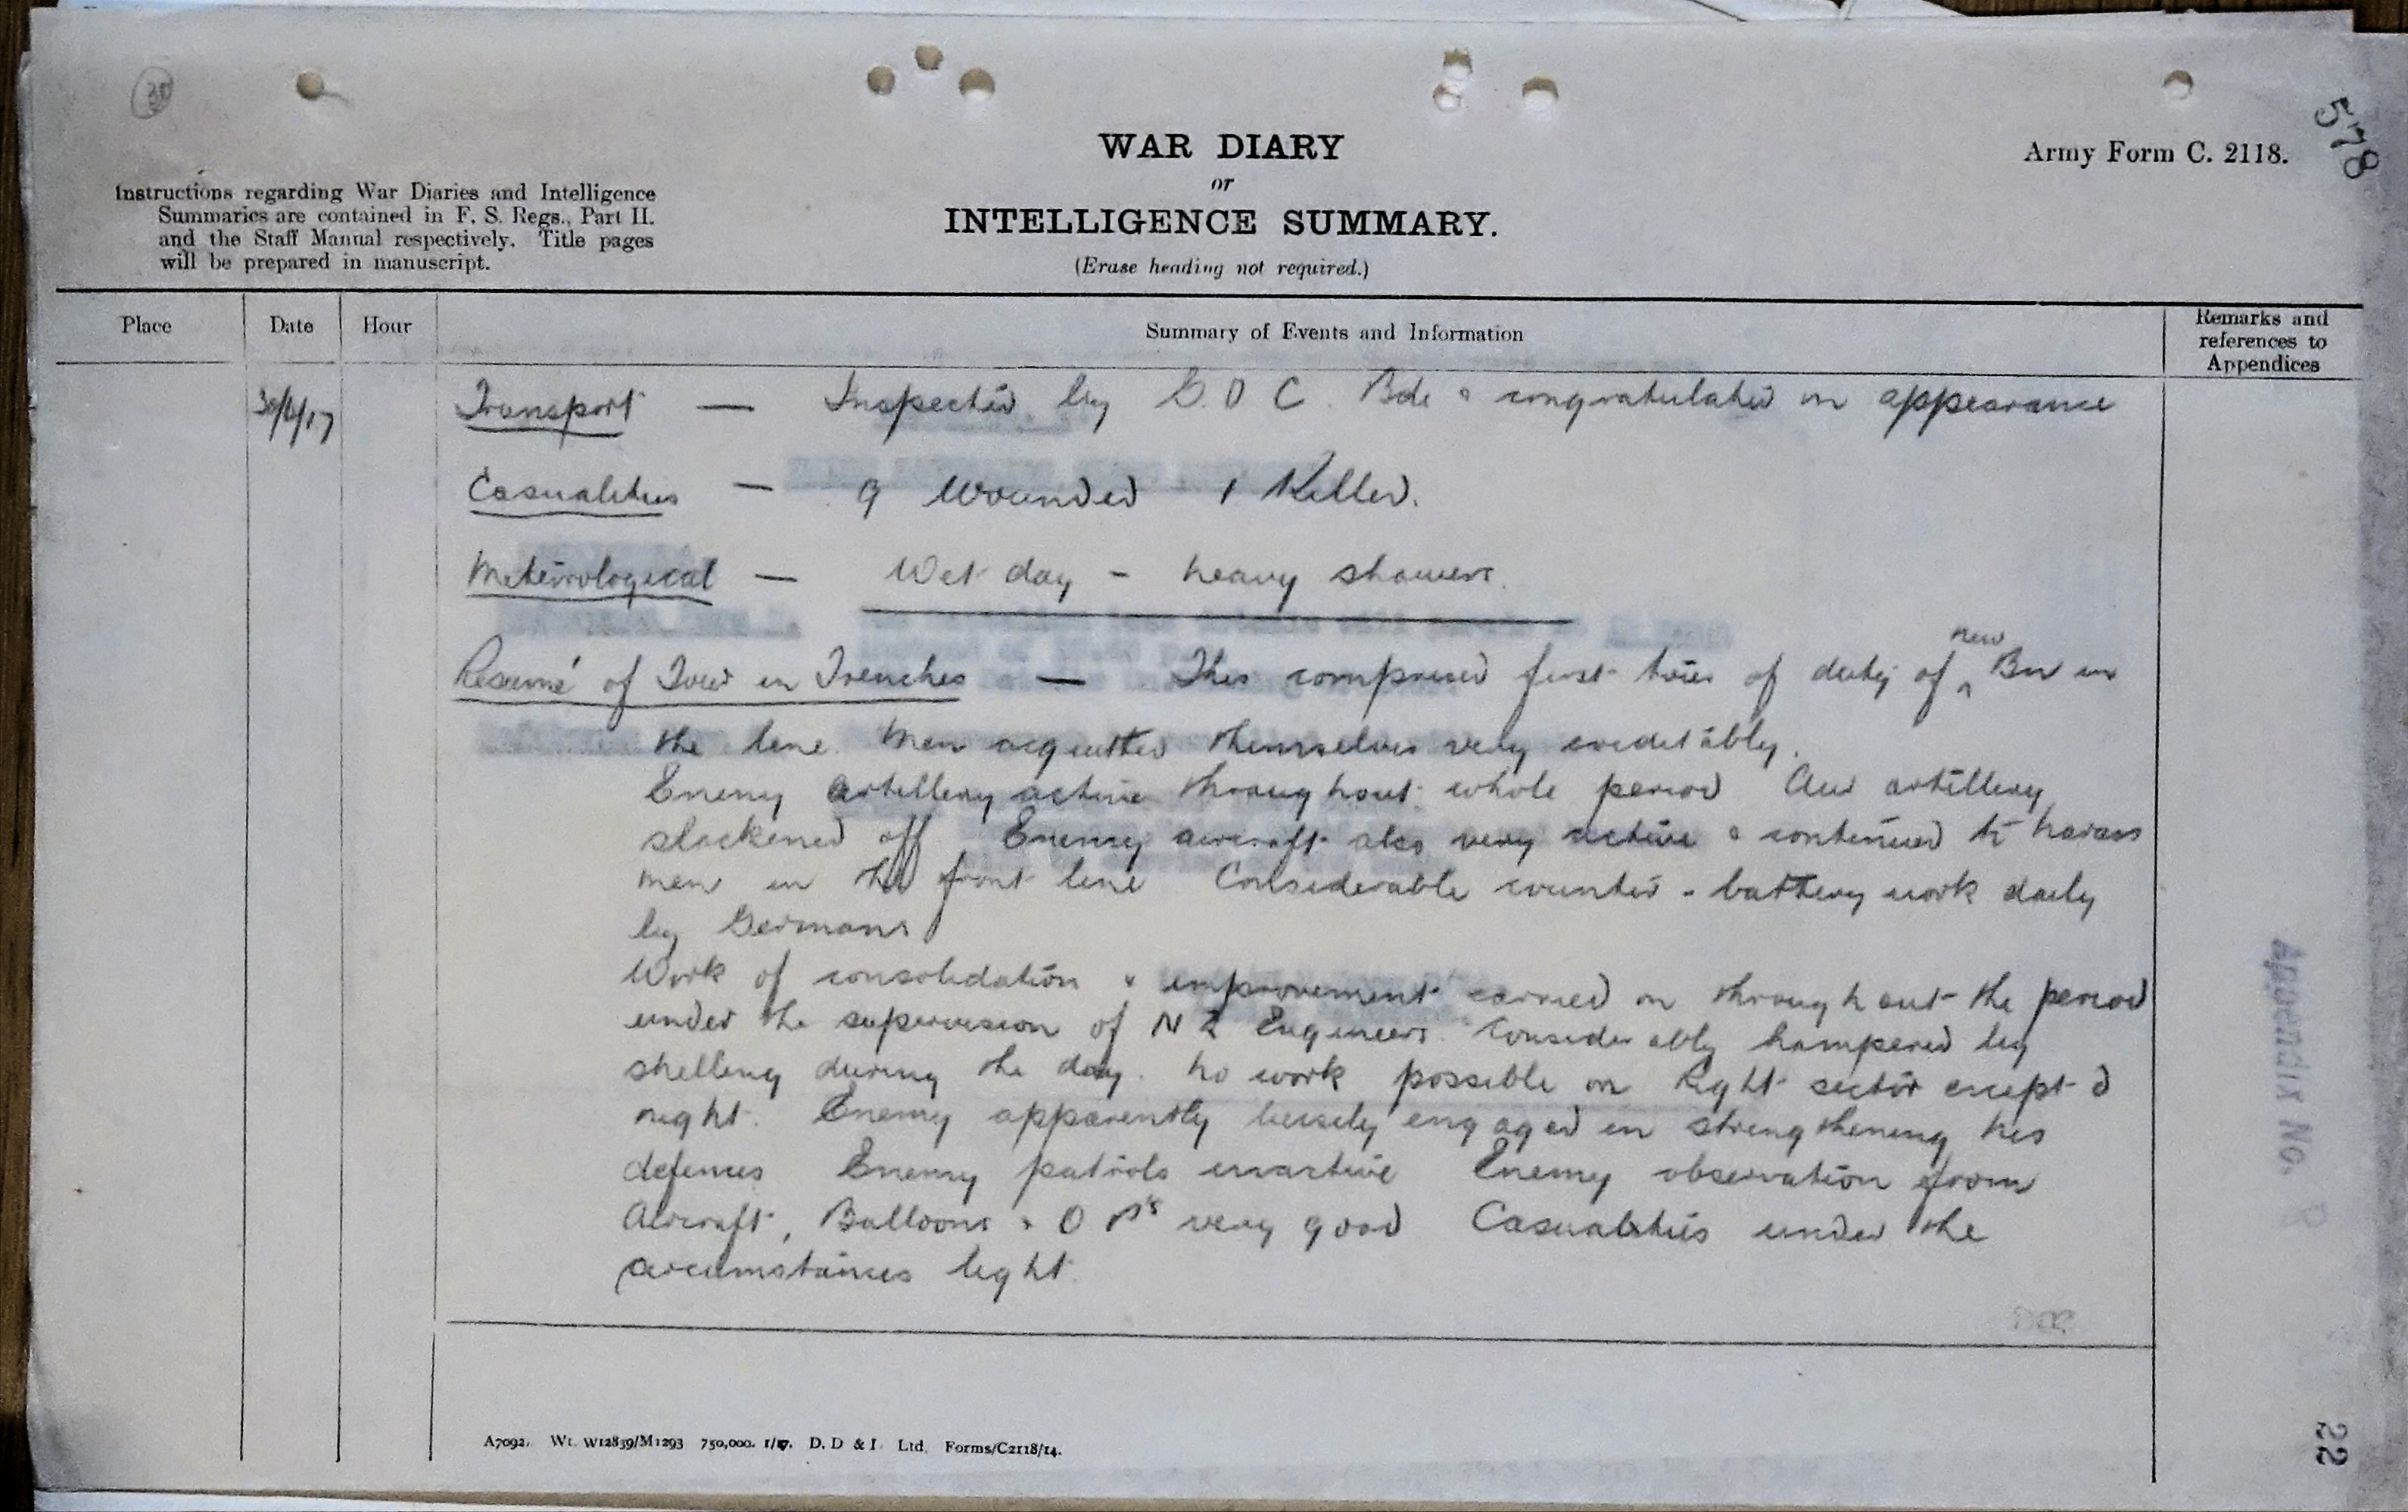 30
578
WAR DIARY
or
INTELLIGENCE SUMMARY.
(Erase heading not required.)
Army Form C. 2118.
Instructions regarding War Diaries and Intelligence
Summaries are contained in F. S. Regs., Part II.
and the Staff Manual respectively. Title pages
will be prepared in manuscript.
Place
Date
Hour
Summary of Events and Information
Remarks and
references to
Appendices
Transport — Inspected by G.O C. Bde & congratulated on appearance
Casualities — 9 Wounded 1 Killed.
Meteirological — Wet day - heavy showers.
Resumé of Tour in Trenches — This comprised first tour of duty of new Bn in
the line. Men acquitted themselves very creditably.
Enemy artillery active throughout whole period Our artillery
slackened off Enemy aircraft also very active & continued to harass
men in the front line Considerable counter - battery work daily
by Germans
Work of consolidation & improvement carried on throughout the period
under the supervision of N Z Engineers. Considerably hampered by
shelling during the day. No work possible on Right sector except @
night. Enemy apparently busily engaged in strengthening his
defences Enemy patrols inactive Enemy observation from
Aircraft, Balloons & O P's very good Casualities under the
circumstances light.
Appendix No.
22
A7092. Wt. W12839/M1293 750,000. 1/17. D. D & I. Ltd. Forms/C2118/14.